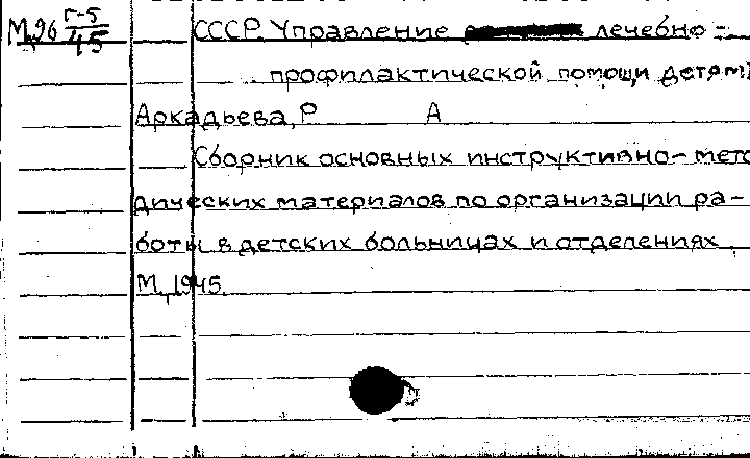 М,96 Г-5/45 СССР. Управление лечебно-
профилактической помощи детям
Аркадьева, Р А
Сборник основных инструктивно-мето
дических материалов по организации ра-
боты в детских больницах и отделениях.
М, 1945.